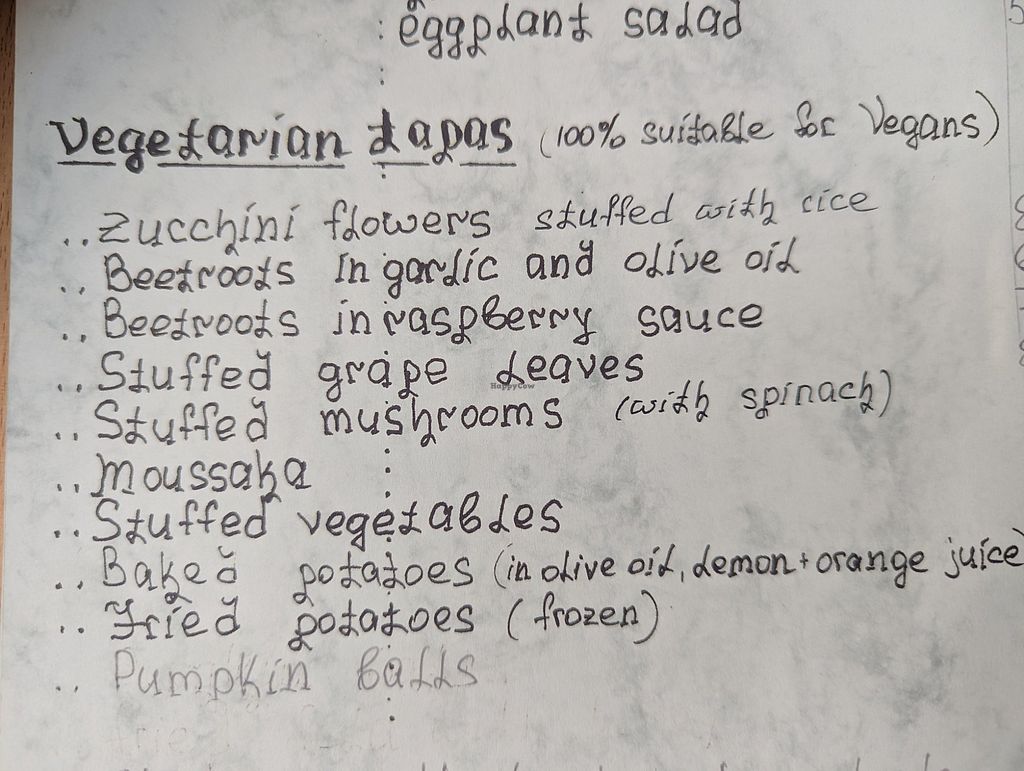 : eggplant salad
Vegetarian tapas (100% suitable for Vegans)
.. Zucchini flowers stuffed with rice
.. Beetroots In garlic and olive oil
.. Beetroots in raspberry sauce
.. Stuffed grape leaves
HappyCow
.. Stuffed mushrooms (with spinach)
.. Moussaka
.. Stuffed vegetables
.. Baked potatoes (in olive oil, lemon + orange juice)
.. Fried potatoes (frozen)
.. Pumpkin balls